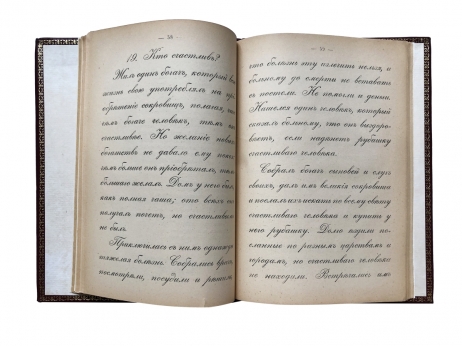 — 38 —
19. Кто счастливъ?
Жилъ одинъ богачъ, который всю
жизнь свою употреблялъ на прі-
обрѣтеніе сокровищъ, полагая, что
чѣмъ богаче человѣкъ, тѣмъ онъ
счастливѣе. Но желаніе новыхъ
богатствъ не давало ему покоя:
чѣмъ больше онъ пріобрѣталъ, тѣмъ
большаго желалъ. Домъ у него былъ,
какъ полная чаша; ото всѣхъ онъ
получалъ почетъ, но счастливымъ
не былъ.
Приключилась съ нимъ однажды
тяжелая болѣзнь. Собрались врачи,
посмотрѣли, посудили и рѣшили,
— 39 —
что болѣзнь эту излечить нельзя, и
больному до смерти не вставать
съ постели. Не помогли и деньги.
Нашелся одинъ человѣкъ, который
сказалъ больному, что тъ выздоро-
вѣетъ, если надѣнетъ рубашку
счастливаго человѣка.
Собралъ богачъ сыновей и слугъ
своихъ, далъ имъ великія сокровища
и послалъ ихъ искать по всему свѣту
счастливаго человѣка и купить у
него рубашку. Долго ходили по-
сланные по разнымъ царствамъ и
городамъ, но счастливаго человѣка
не находили. Встрѣчались имъ